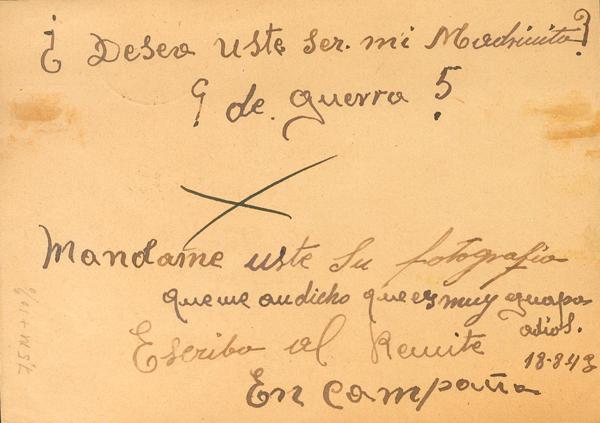 ¿ Desea uste ser. mi Madrinita?
¿ de. guerra ?
Mandame uste su fotografia
que me an dicho que es muy guapa
adios.
Escriba al Remite
18-8-43
En campaña